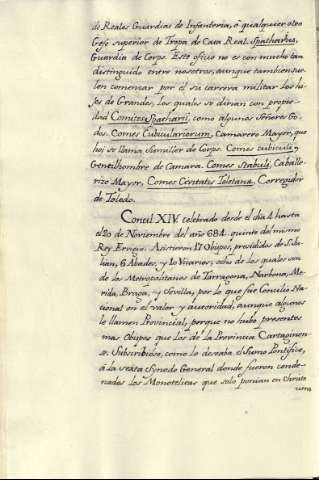 de Reales Guardias de Infanteria, ó qualquier otro
Gefe superior de Tropa de Casa Real. Spatharius,
Guardia de Corps. Este oficio no es con mucho tan
distinguido entre nosotros, aunque tambien sue-
len comenzar por el su carrera militar los hi-
jos de Grandes, los quales se dirian con propie-
dad Comites Spatharii, como algunos Señores Go-
dos. Comes Cubiculariorum, Camarero Mayor, que
hoy se llama Sumiller de Corps. Comes cubiculi y
Gentilhombre de Camara. Comes Stabuli, Caballe-
rizo Mayor, Comes Civitatis Toletana, Corregidor
de Toledo.
Concil XIV. celebrado desde el dia 4 hasta
el 20 de Noviembre del año 684. quinto del mismo
Rey Ervigio. Asistieron 17 Obispos, presididos de S. Ju-
lian, 6 Abades, y 10 Vicarios, ocho de los quales son
de los Metropolitanos de Tarragona, Narbona, Me-
rida, Braga, y Sevilla, por lo que fue Concilio Na-
cional en el valor y autoridad, aunque algunos
le llamen Provincial, porque no hubo presentes
mas Obispos que los de la Provincia Cartaginen-
se. Subscribiose, como lo deseaba el Sumo Pontifice,
a la sexta Synodo General donde fueron conde-
nados los Monotelitas que solo ponian en Christo